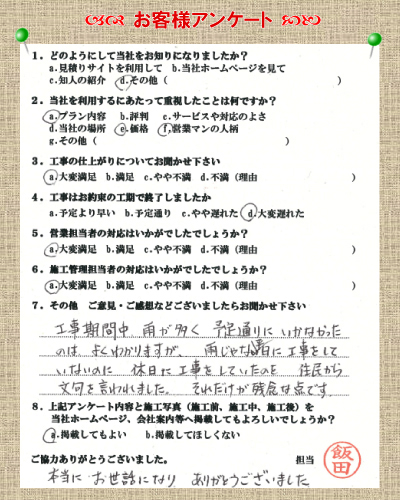 お客様アンケート
1．どのようにして当社をお知りになりましたか？
a.見積りサイトを利用して b.当社ホームページを見て
c.知人の紹介 d.その他（ ）
2．当社を利用するにあたって重視したことは何ですか？
a.プラン内容 b.評判 c.サービスや対応のよさ
d.当社の場所 e.価格 f.営業マンの人柄
g.その他（ ）
3．工事の仕上がりについてお聞かせ下さい
a.大変満足 b.満足 c.やや不満 d.不満（理由 ）
4．工事はお約束の工期で終了しましたか
a.予定より早い b.予定通り c.やや遅れた d.大変遅れた
5．営業担当者の対応はいかがでしたでしょうか？
a.大変満足 b.満足 c.やや不満 d.不満（理由 ）
6．施工管理担当者の対応はいかがでしたでしょうか？
a.大変満足 b.満足 c.やや不満 d.不満（理由 ）
7．その他 ご意見・ご感想などございましたらお聞かせ下さい
工事期間中 雨が多く 予定通りにいかなかった
のは よくわかりますが、 雨じゃない日に工事をして
いないのに 休日に工事をしていたのを 住民から
文句を言われました。 それだけが残念な点です。
8．上記アンケート内容と施工写真（施工前、施工中、施工後）を
当社ホームページ、会社案内等へ掲載してもよろしいでしょうか？
a.掲載してもよい b.掲載してほしくない
ご協力ありがとうございました。 担当 飯田
本当に お世話になり ありがとうございました